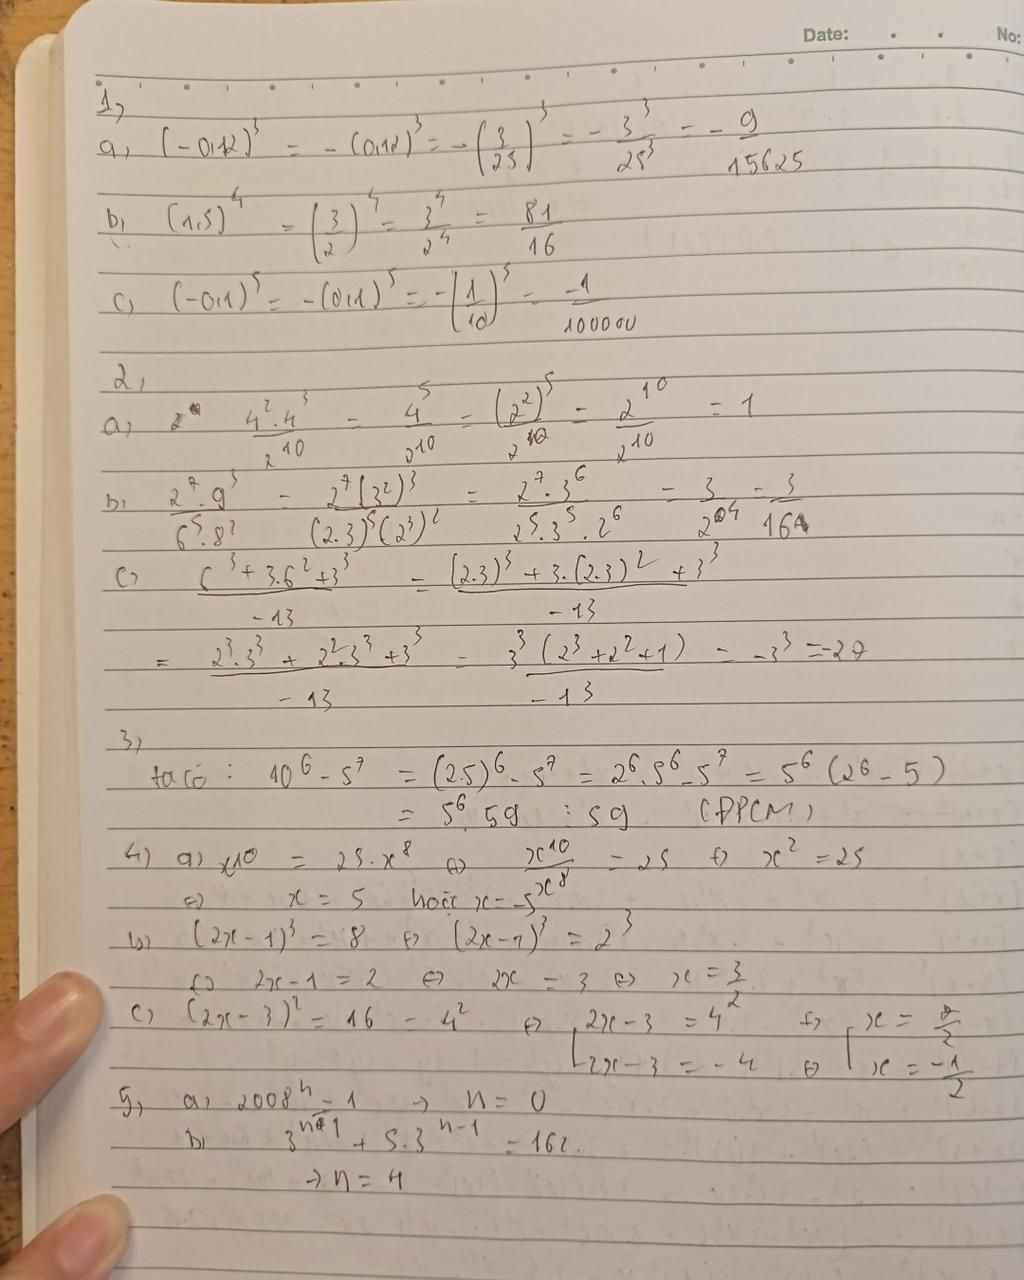 Date: No:
1,
a, (-0,12)³ = -(0,12)³ = -(3/25)³ = - 3³/25³ = - 9/15625
b, (1,5)⁴ = (3/2)⁴ = 3⁴/2⁴ = 81/16
c, (-0,1)⁵ = -(0,1)⁵ = -(1/10)⁵ = -1/100000
2,
a, 4².4³/2¹⁰ = 4⁵/2¹⁰ = (2²)⁵/2¹⁰ = 2¹⁰/2¹⁰ = 1
b, 2⁷.9³/6⁵.8² = 2⁷(3²)³/(2.3)⁵(2³)² = 2⁷.3⁶/2⁵.3⁵.2⁶ = 3/2⁴ = 3/16
c, 6³+3.6²+3³/-13 = (2.3)³+3.(2.3)²+3³/-13
= 2³.3³+2².3³+3³/-13 = 3³(2³+2²+1)/-13 = -3³ = -27
3,
ta có : 10⁶-5⁷ = (2.5)⁶-5⁷ = 2⁶.5⁶-5⁷ = 5⁶(2⁶-5)
= 5⁶.59 ⋮ 59 (ĐPCM)
4, a, x¹⁰ = 25.x⁸ ⇔ x¹⁰/x⁸ = 25 ⇔ x² = 25
⇔ x = 5 hoặc x = -5
b, (2x-1)³ = 8 ⇔ (2x-1)³ = 2³
⇔ 2x-1 = 2 ⇔ 2x = 3 ⇔ x = 3/2
c, (2x-3)² = 16 = 4² ⇔ [2x-3 = 4² ⇔ [x = 7/2
2x-3 = -4 ⇔ x = -1/2
5, a, 2008ⁿ = 1 → n = 0
b, 3ⁿ⁺¹ + 5.3ⁿ⁻¹ = 162.
→ n = 4